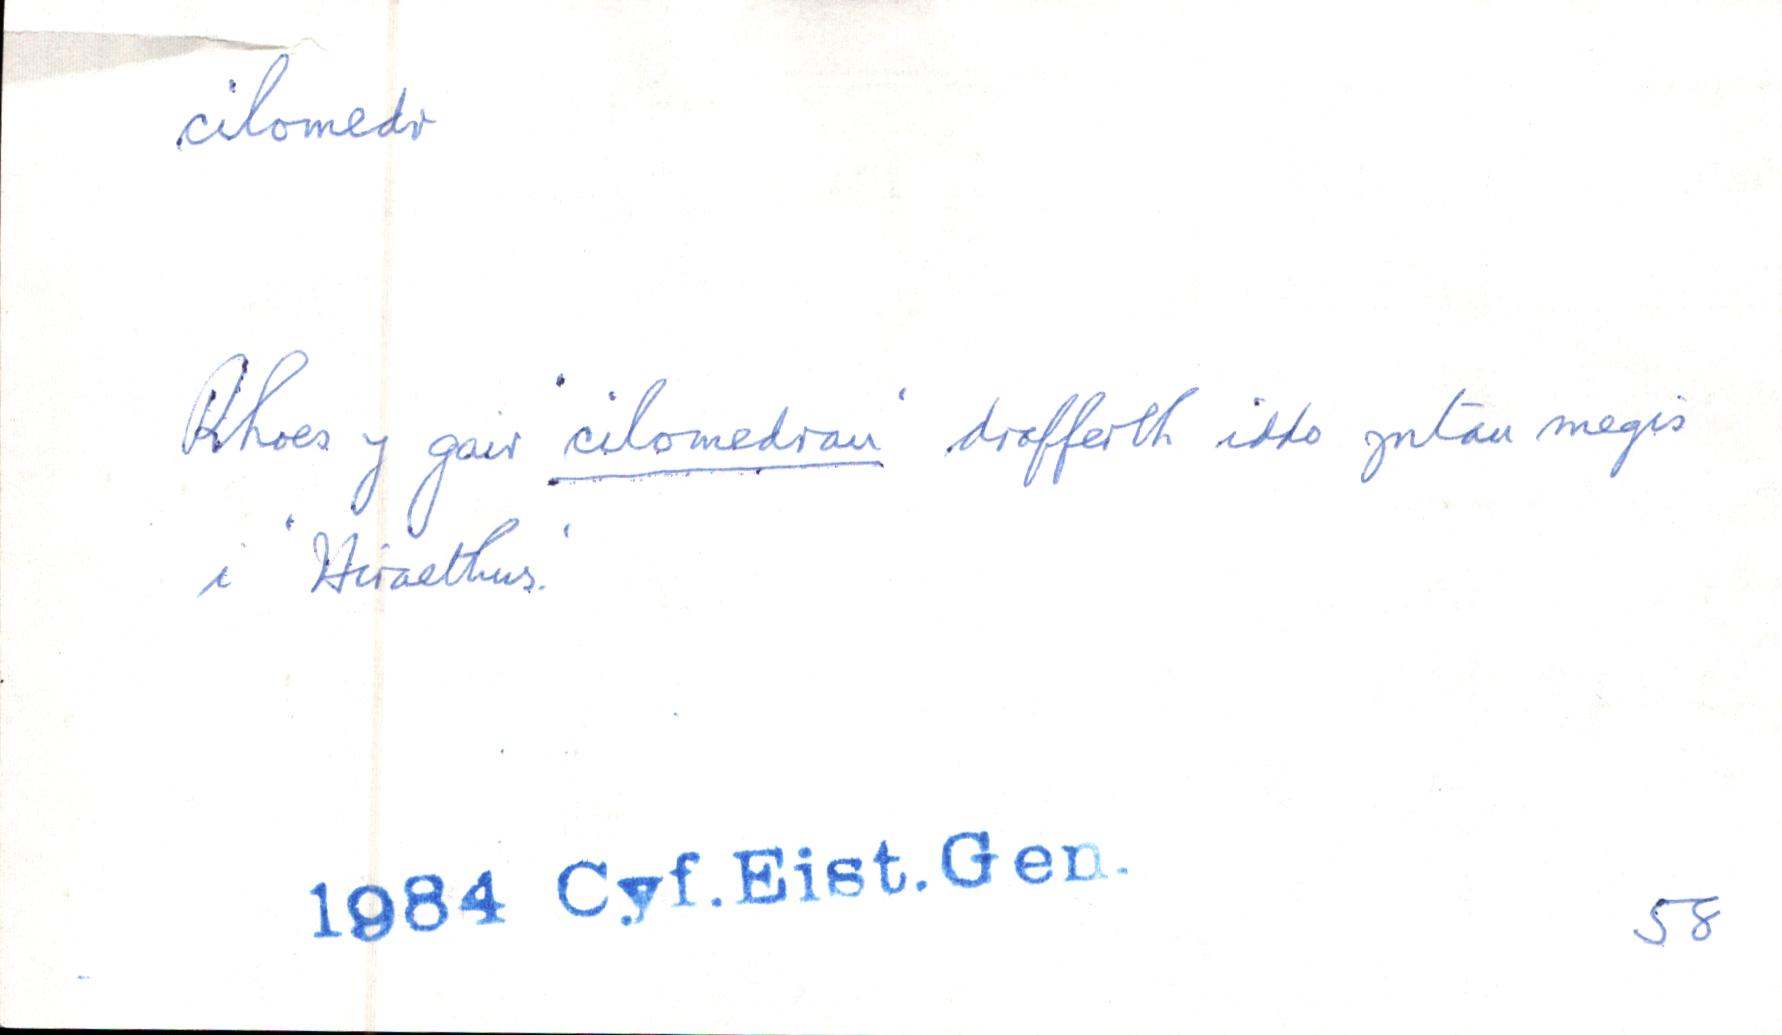 cilomedr
Rhoes y gair 'cilomedrau' drafferth iddo yntau megis
i 'Hiraethus.'
1984 Cyf.Eist.Gen.
58